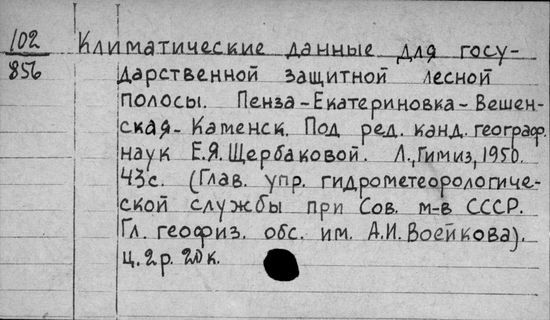 102 Климатические данные для госу-
856 дарственной защитной лесной
полосы. Пенза-Екатериновка-Вешен-
ская-Каменск. Под ред. канд. географ.
наук Е.Я. Щербаковой. Л., Гимиз, 1950.
43с. (Глав. упр. гидрометеорологиче-
ской службы при Сов. м-в СССР.
Гл. геофиз. обс. им. А.И. Воейкова).
ц. 2 р. 20 к.